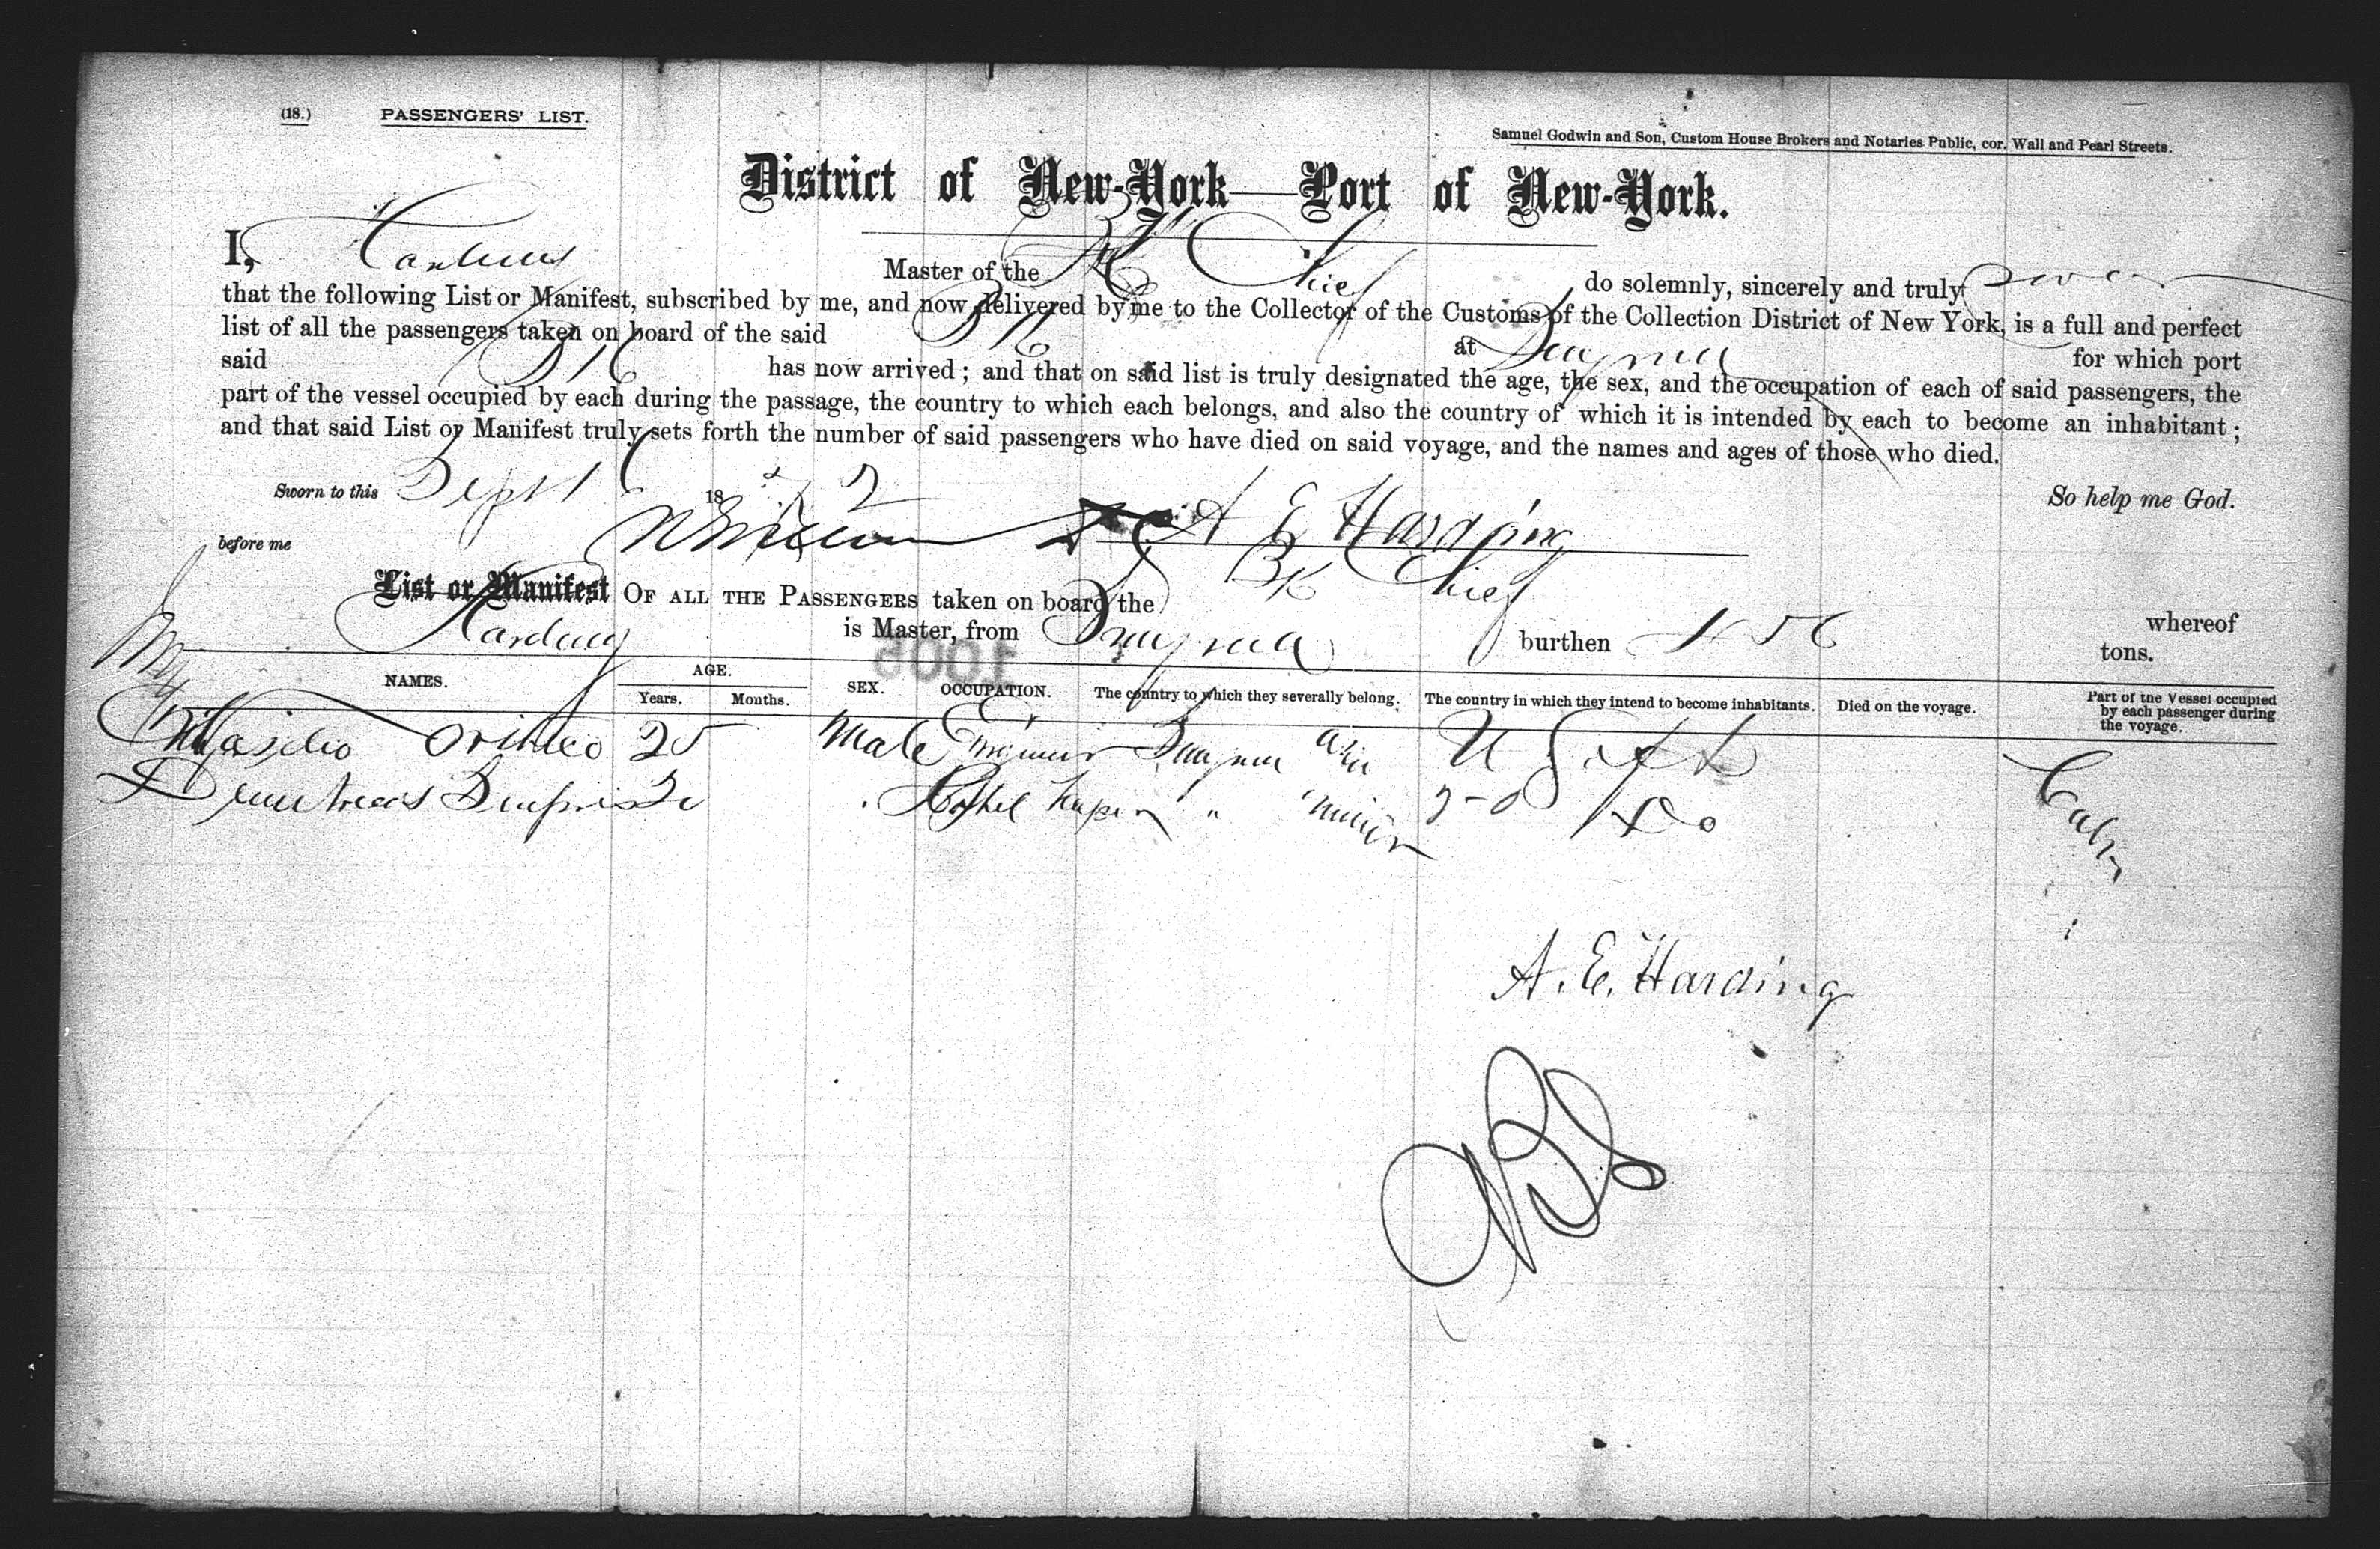 (18.) PASSENGERS' LIST.
Samuel Godwin and Son, Custom House Brokers and Notaries Public, cor. Wall and Pearl Streets.
District of New-York—Port of New-York.
I, Harding Master of the Bk Chief do solemnly, sincerely and truly swear
that the following List or Manifest, subscribed by me, and now delivered by me to the Collector of the Customs of the Collection District of New York, is a full and perfect
list of all the passengers taken on board of the said Bk at Smyrna for which port
said Bk has now arrived; and that on said list is truly designated the age, the sex, and the occupation of each of said passengers, the
part of the vessel occupied by each during the passage, the country to which each belongs, and also the country of which it is intended by each to become an inhabitant;
and that said List or Manifest truly sets forth the number of said passengers who have died on said voyage, and the names and ages of those who died.
Sworn to this Sept 1872 So help me God.
before me A E Harding
List or Manifest OF ALL THE PASSENGERS taken on board the Bk Chief whereof
Harding is Master, from Smyrna burthen tons.
1006
NAMES. AGE. Years. Months. SEX. OCCUPATION. The country to which they severally belong. The country in which they intend to become inhabitants. Died on the voyage. Part of the Vessel occupied by each passenger during the voyage.
25 Male Engineer Smyrna Asia U S Cabin
" Hotel keeper " Minor Do
A. E. Harding